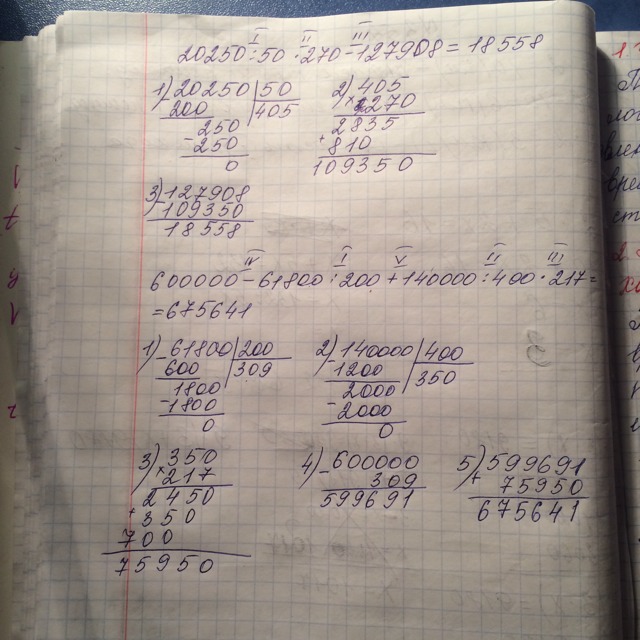 I II III
20250:50·270-127908=18558
1) 20250 | 50 2) 405
- 200 | 405 × 270
250 2835
- 250 + 810
0 109350
3) 127908
- 109350
18558
IV I V II III
600000-61800:200+140000:400·217=
=675641
1) - 61800 | 200 2) - 140000 | 400
600 | 309 1200 | 350
1800 2000
- 1800 - 2000
0 0
3) 350 4) - 600000 5) 599691
× 217 309 + 75950
2450 599691 675641
+ 350
700
75950